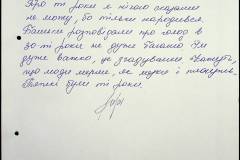 Про ті роки я нічого сказати
не можу, бо тільки народився.
Батьки розповідали про голод в
30-ті роки не дуже багато. Їм
дуже важко, це згадування. Кажуть,
що люди мерли, як мухи і пухнули.
Тяжкі були ті роки.